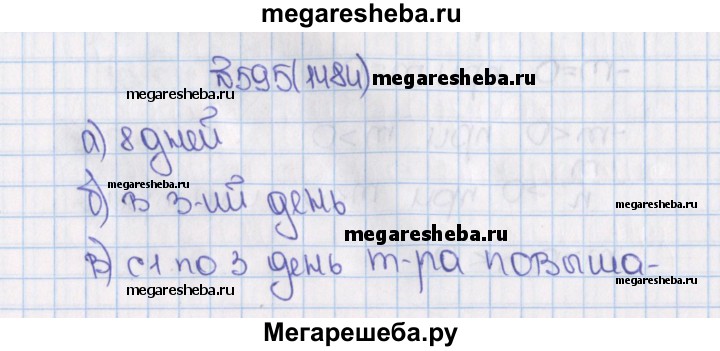 megaresheba.ru
№595(1484)
megaresheba.ru
megaresheba.ru
а) 8 дней
megaresheba.ru
б) в 3-ий день
megaresheba.ru
megaresheba.ru
в) с 1 по 3 день т-ра повыша-
megaresheba.ru
megaresheba.ru
Мегарешеба.ру